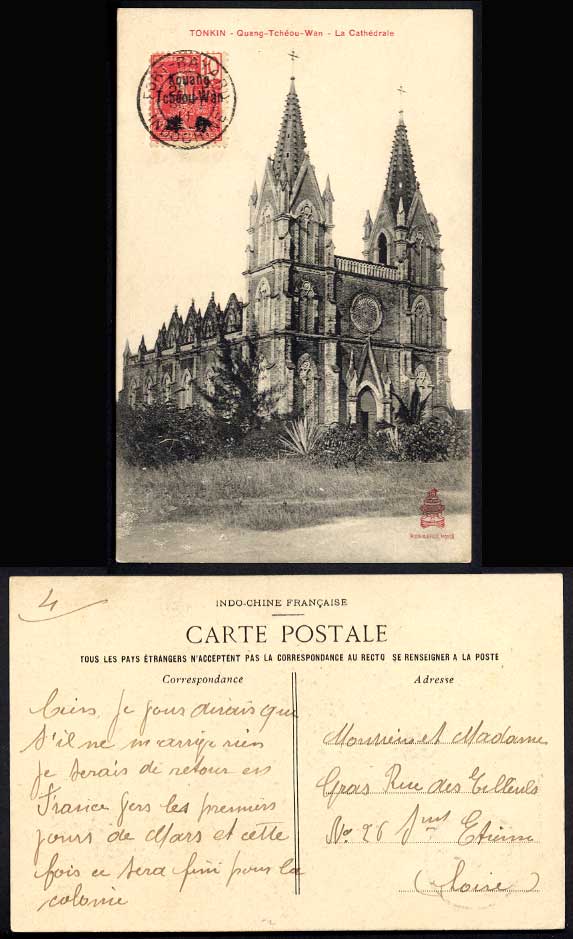 TONKIN - Quang-Tchéou-Wan - La Cathédrale
10
Kouang
Tchéou-Wan
FORT-BAYARD
INDOCHINE
4
INDO-CHINE FRANÇAISE
CARTE POSTALE
TOUS LES PAYS ÉTRANGERS N'ACCEPTENT PAS LA CORRESPONDANCE AU RECTO SE RENSEIGNER A LA POSTE
Correspondance
Adresse
Je vous dirais que
s'il ne m'arrige rien
je serais de retour en
France vers les premiers
jours de Mars et cette
fois ce sera fini pour la
colonie
Monsieur et Madame
Gras Rue des Tilleuls
No 26 Etienne
(Loire)